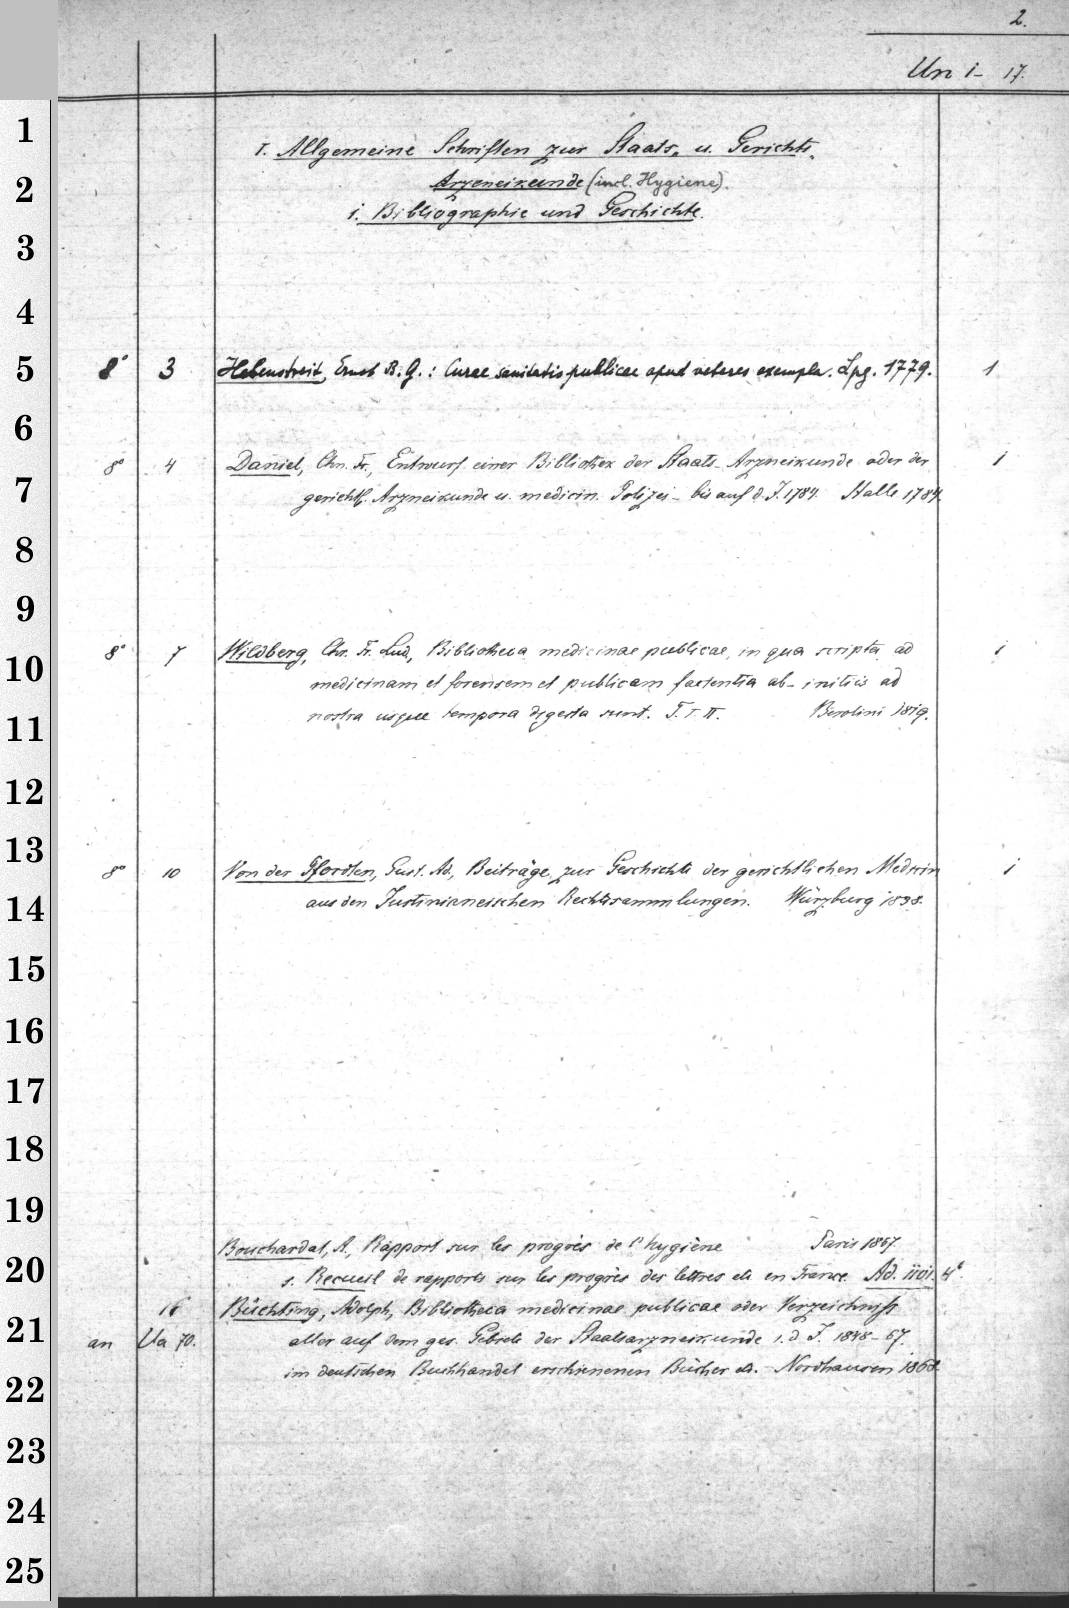 2.
Un 1- 17.
1
I. Allgemeine Schriften zur Staats- u. Gerichts-
2
Arzneikunde (incl. Hygiene).
1. Bibliographie und Geschichte.
3
4
5
8° 3 Hebenstreit, Ernst B. G.: Curae sanitatis publicae apud veteres exempla. Lpg. 1779. 1
6
8° 4 Daniel, Chn. Fr., Entwurf einer Bibliothek der Staats-Arzneikunde oder der 1
7
gerichtl. Arzneikunde u. medicin. Polizei - bis auf d. J. 1784. Halle 1784.
8
9
8° 7 Wildberg, Chr. Fr. Lud., Bibliotheca medicinae publicae, in qua scripta ad 1
10
medicinam et forensem et publicam facientia ab initiis ad
nostra usque tempora digesta sunt. T. I II. Berolini 1819.
11
12
13
8° 10 Von der Pfordten, Gust. Ad., Beiträge zur Geschichte der gerichtlichen Medicin 1
14
aus den Justinianeischen Rechtssammlungen. Würzburg 1838.
15
16
17
18
19
Bouchardat, A., Rapport sur les progrès de l'hygiène Paris 1867.
20
s. Recueil de rapports sur les progrès des lettres etc en France. Ad. 1101. 4°
16 Büchting, Adolph, Bibliotheca medicinae publicae oder Verzeichniss
21
an Ua 70. aller auf dem ges. Gebiete der Staatsarzneikunde i. d. J. 1848-67.
22
im deutschen Buchhandel erschienenen Bücher etc. Nordhausen 1868.
23
24
25